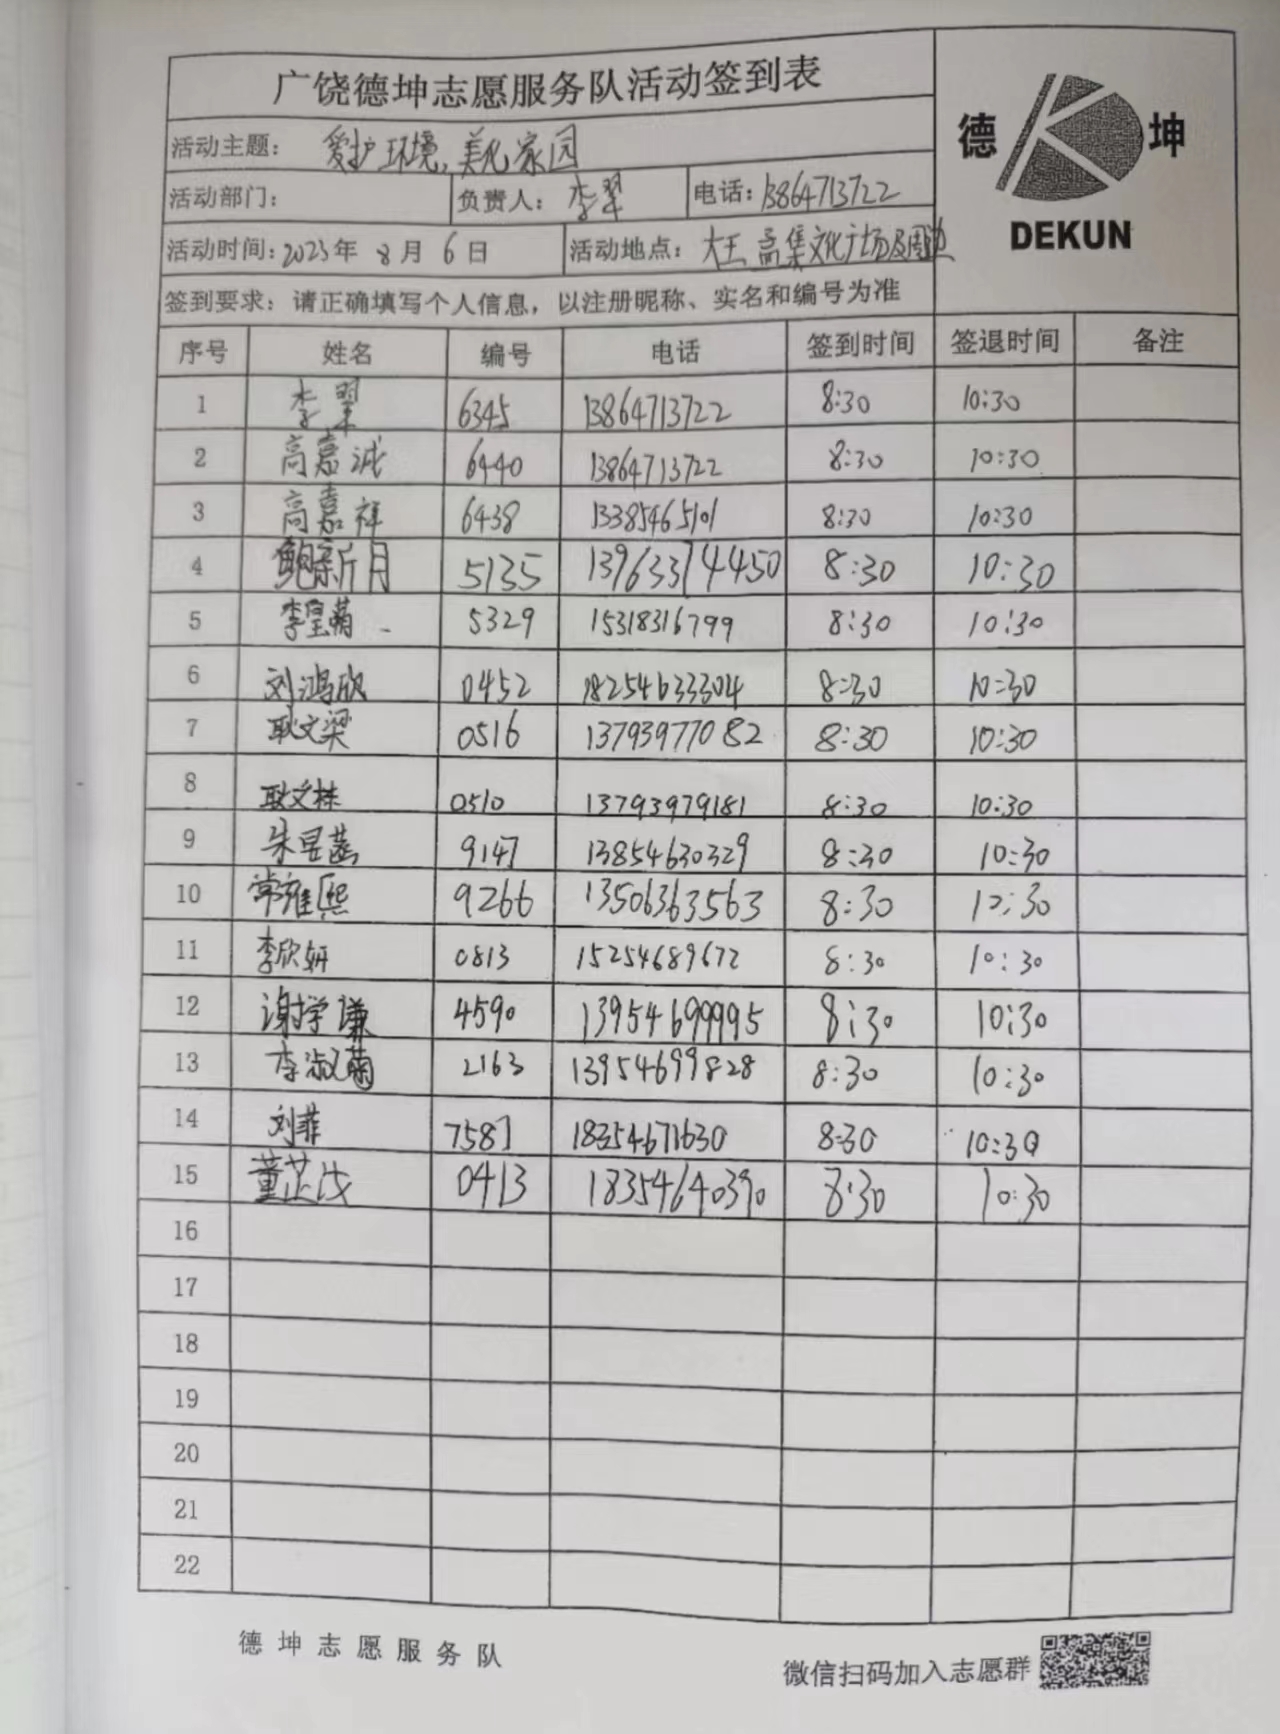 广饶德坤志愿服务队活动签到表
德 坤
DEKUN
活动主题: 爱护环境,美化家园
活动部门: 负责人: 李翠 电话: 13864713722
活动时间: 2023年 8月 6日 活动地点: 大王孟集文化广场及周边
签到要求: 请正确填写个人信息，以注册昵称、实名和编号为准
序号 姓名 编号 电话 签到时间 签退时间 备注
1 李翠 6345 13864713722 8:30 10:30
2 高嘉诚 6440 13864713722 8:30 10:30
3 高嘉祥 6438 13385465101 8:30 10:30
4 鲍新月 5135 13963374450 8:30 10:30
5 李皇菊 5329 15318316799 8:30 10:30
6 刘鸿欣 0452 18254633304 8:30 10:30
7 耿文梁 0516 13793977082 8:30 10:30
8 耿文栋 0510 13793979181 8:30 10:30
9 朱昱菡 9147 13854630329 8:30 10:30
10 常雍熙 9266 13506363563 8:30 10:30
11 李欣妍 0813 15254689672 8:30 10:30
12 谢学谦 4590 13954699995 8:30 10:30
13 李淑菊 2163 13954699828 8:30 10:30
14 刘菲 7587 18354671630 8:30 10:30
15 董芷茂 0413 18354640390 8:30 10:30
16
17
18
19
20
21
22
德坤志愿服务队
微信扫码加入志愿群